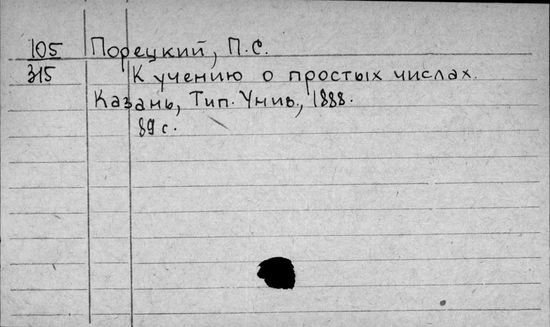 105 Порецкий, П.С.
315 К учению о простых числах.
Казань, Тип. Унив., 1888.
89 с.